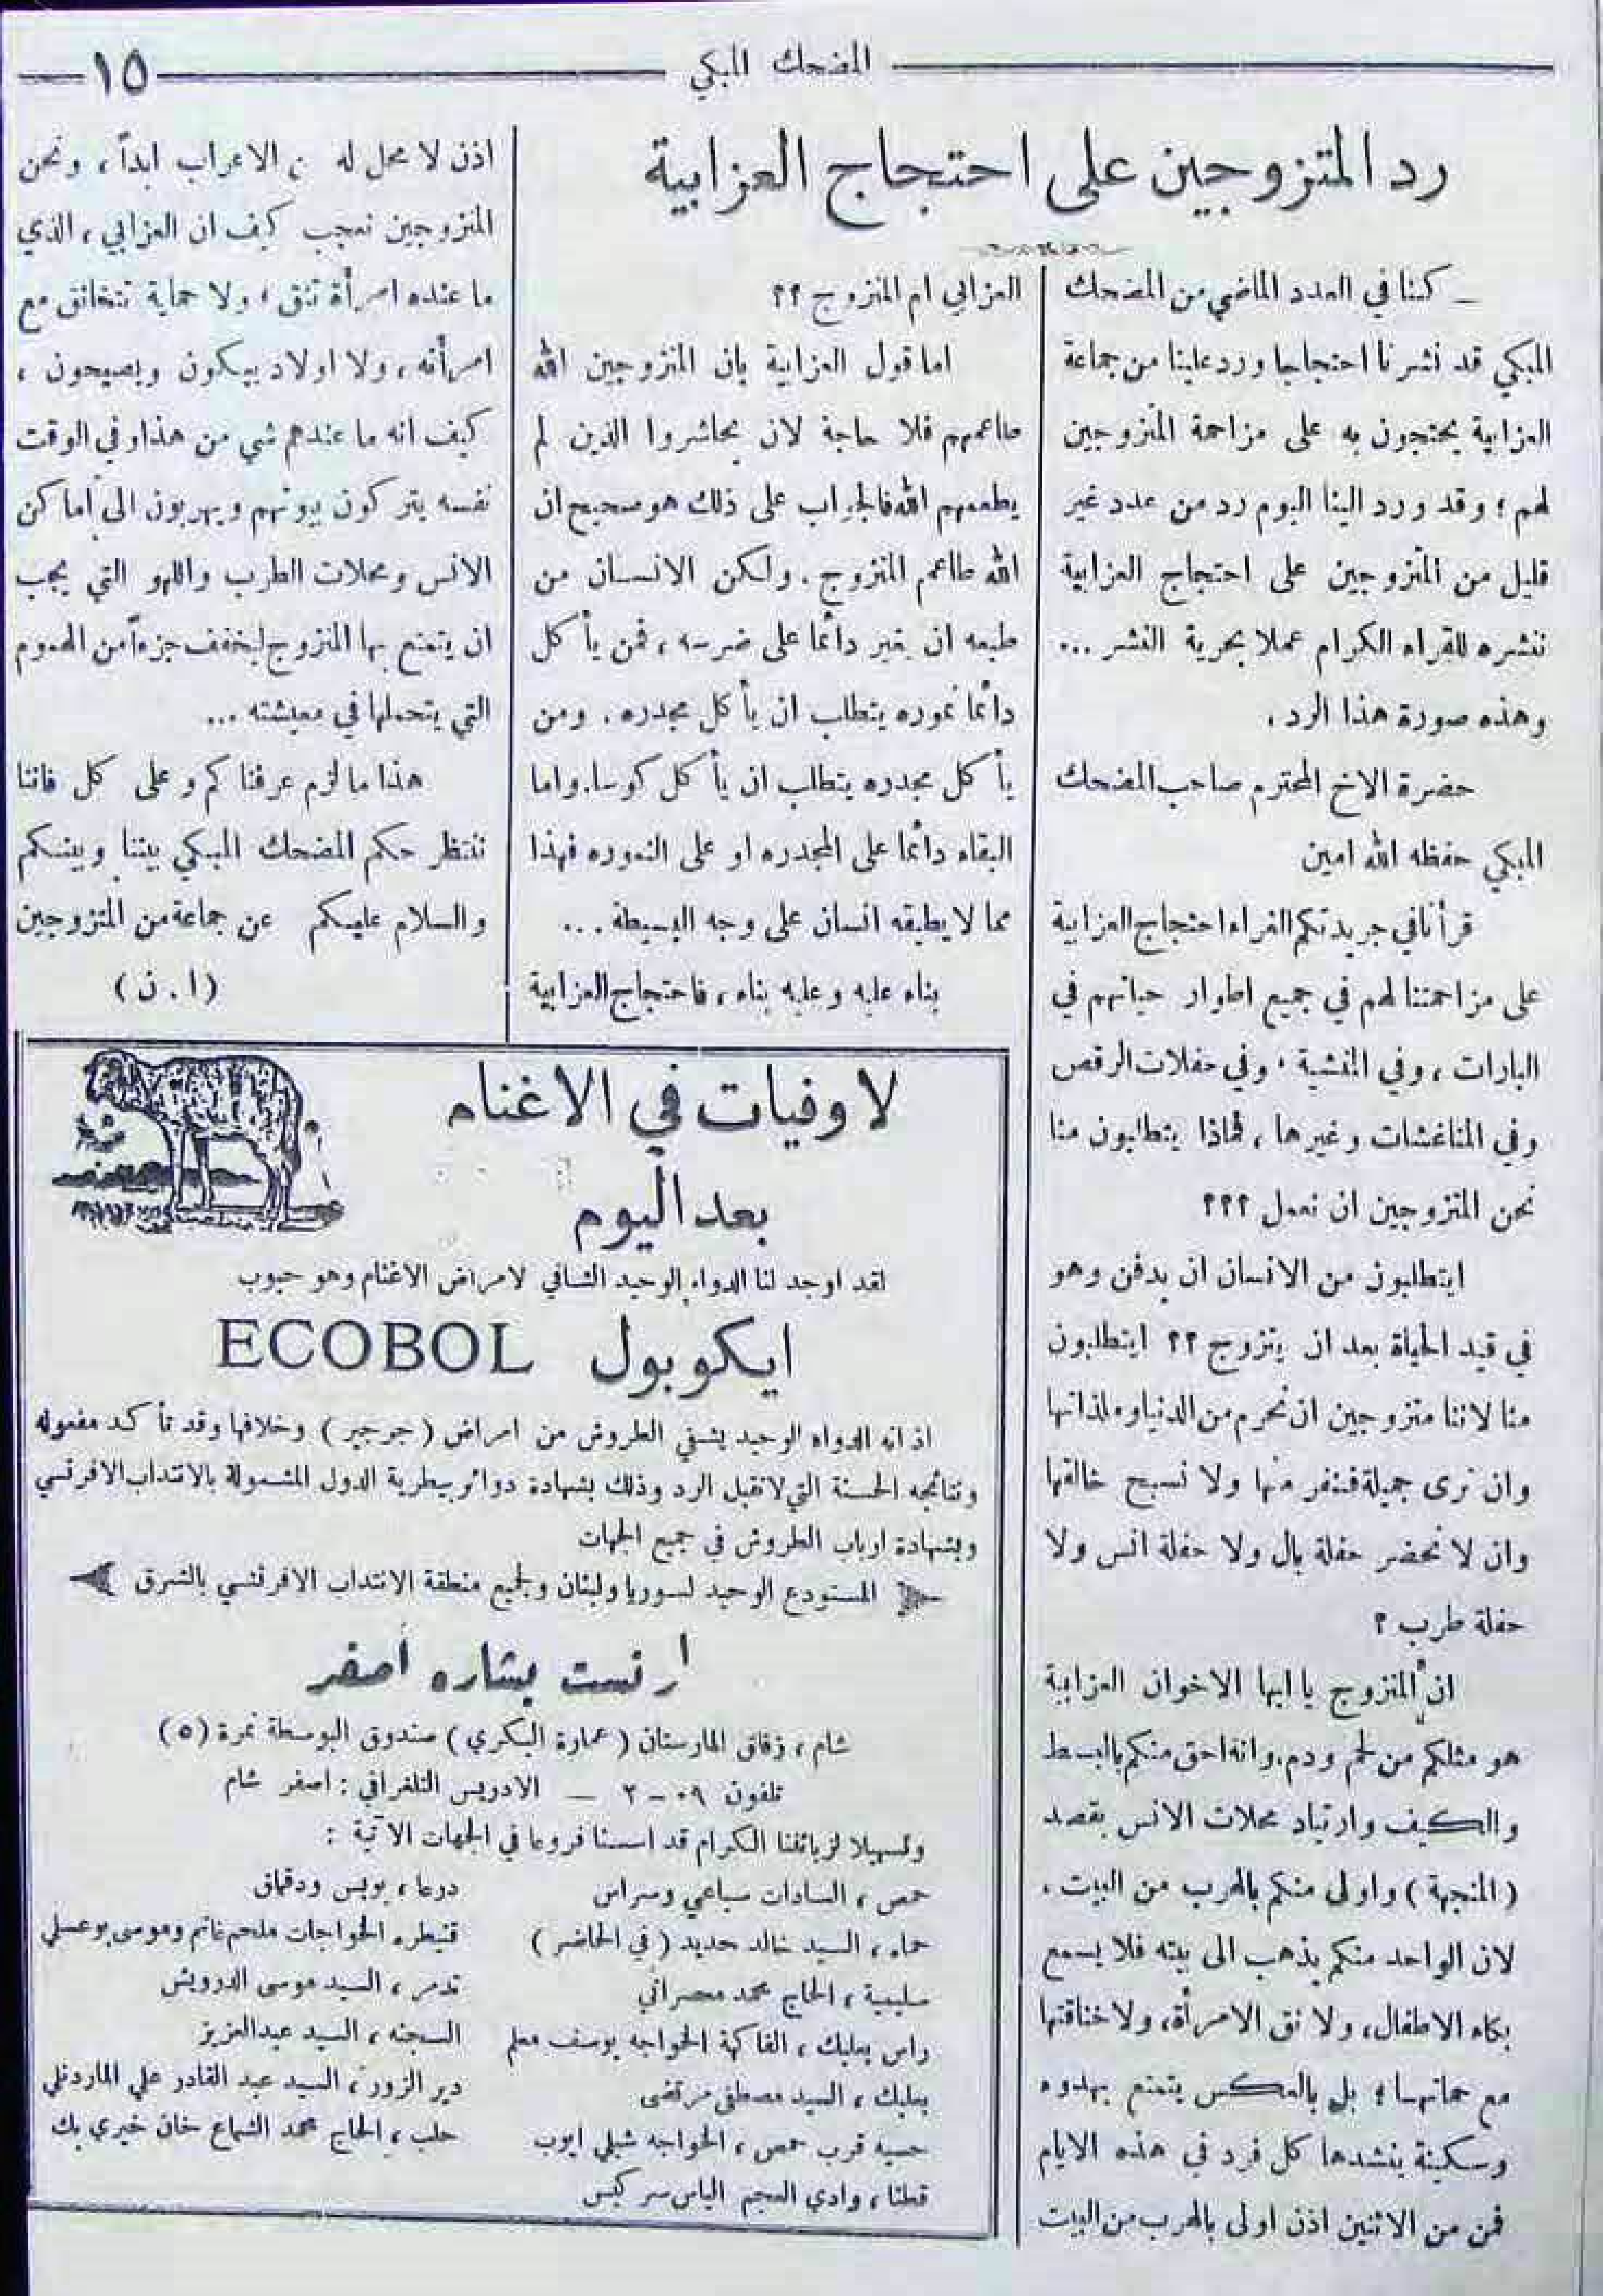 المضحك المبكي
١٥
رد المتزوجين على احتجاج العزابية
ـ كنا في العدد الماضي من المضحك
المبكي قد نشرنا احتجاجا ورد علينا من جماعة
العزابية يحتجون به على مزاحمة المتزوجين
لهم ؛ وقد ورد الينا اليوم رد من عدد غير
قليل من المتزوجين على احتجاج العزابية
ننشره للقراء الكرام عملا بحرية النشر ...
وهذه صورة هذا الرد .
حضرة الاخ المحترم صاحب المضحك
المبكي حفظه الله امين
قرأنا في جريدتكم الغراء احتجاج العزابية
على مزاحمتنا لهم في جميع اطوار حياتهم في
البارات ، وفي المنشية ، وفي حفلات الرقص
وفي المناغشات وغيرها ، فماذا يتطلبون منا
نحن المتزوجين ان نعمل ؟؟؟
ايتطلبون من الانسان ان يدفن وهو
في قيد الحياة بعد ان يتزوج ؟؟ ايتطلبون
منا لاننا متزوجين ان نحرم من الدنيا وملذاتها
وان نرى جميلة فننفر منها ولا نسبح خالقها
وان لا نحضر حفلة بال ولا حفلة انس ولا
حفلة طرب ؟
ان المتزوج يا ايها الاخوان العزابية
هو مثلكم من لحم ودم . وانه احق منكم بالبسط
والكيف وارتياد محلات الانس بقصد
( المنجهة ) واولى منكم بالهرب من البيت .
لان الواحد منكم يذهب الى بيته فلا يسمع
بكاء الاطفال ، ولا نق الامرأة ، ولا خناقتها
مع حماتها ؛ بل بالعكس يتمتع بهدوء
وسكينة ينشدها كل فرد في هذه الايام
فمن من الاثنين اذن اولى بالهرب من البيت
العزابي ام المتزوج ؟؟
اما قول العزابية بان المتزوجين الله
طاعمهم فلا حاجة لان يحاشروا الذين لم
يطعمهم الله فالجواب على ذلك هو صحيح ان
الله طاعم المتزوج . ولكن الانسان من
طبعه ان يغير دائما على ضرسه ، فمن يأكل
دائما نموره يتطلب ان يأكل مجدره . ومن
يأكل مجدره يتطلب ان يأكل كوسا . واما
البقاء دائما على المجدره او على النموره فهذا
مما لا يطيقه انسان على وجه البسيطة ...
بناء عليه وعليه بناء ، فاحتجاج العزابية
اذن لا محل له من الاعراب ابداً ، ونحن
المتزوجين نعجب كيف ان العزابي ، الذي
ما عنده امرأة تنق ؛ ولا حماية تتخانق مع
امرأته ، ولا اولاد يبكون ويصيحون ،
كيف انه ما عندهم شي من هذا وفي الوقت
نفسه يتركون بيوتهم ويهربون الى أماكن
الانس ومحلات الطرب واللهو التي يجب
ان يتمتع بها المتزوج ليخفف جزءاً من الهموم
التي يتحملها في معيشته ...
هذا ما لزم عرفناكم وعلى كل فاننا
ننتظر حكم المضحك المبكي بيننا وبينكم
والسلام عليكم عن جماعة من المتزوجين
( ا . ن )
لا وفيات في الاغنام
بعد اليوم
لقد اوجد لنا الدواء الوحيد الشافي لامراض الاغنام وهو حبوب
ايكوبول ECOBOL
اذ انه الدواء الوحيد يشفي الطروش من امراض ( جرجير ) وخلافها وقد تأكد مفعوله
ونتائجه الحسنة التي لا تقبل الرد وذلك بشهادة دوائر بيطرية الدول المشمولة بالانتداب الافرنسي
وبشهادة ارباب الطروش في جميع الجهات
المستودع الوحيد لسوريا ولبنان ولجميع منطقة الانتداب الافرنسي بالشرق
ارنست بشاره أصفر
شام ، زقاق المارستان ( عمارة البكري ) صندوق البوسطة نمرة (٥)
تلفون ٠٩ - ٢ ـ الادريس التلغرافي : اصفر شام
وتسهيلا لزبائننا الكرام قد اسسنا فروعا في الجهات الآتية :
حمص ، السادات سباعي وسراس
حماه ، السيد خالد حديد ( في الحاضر )
سليمية ، الحاج محمد مصراني
راس بعلبك ، الفاكهة الخواجه يوسف معلم
بعلبك ، السيد مصطفى مرتضى
حسيه قرب حمص ، الخواجه شبلي ايوب
قطنا ، وادي العجم الياس سركيس
درعا ، بويس ودقماق
قنيطره الخواجات ملحم غانم وموسى بو عسلي
تدمر ، السيد موسى الدرويش
السخنه ، السيد عبد العزيز
دير الزور ، السيد عبد القادر علي الماردنلي
حلب ، الحاج محمد الشماع خان خيري بك